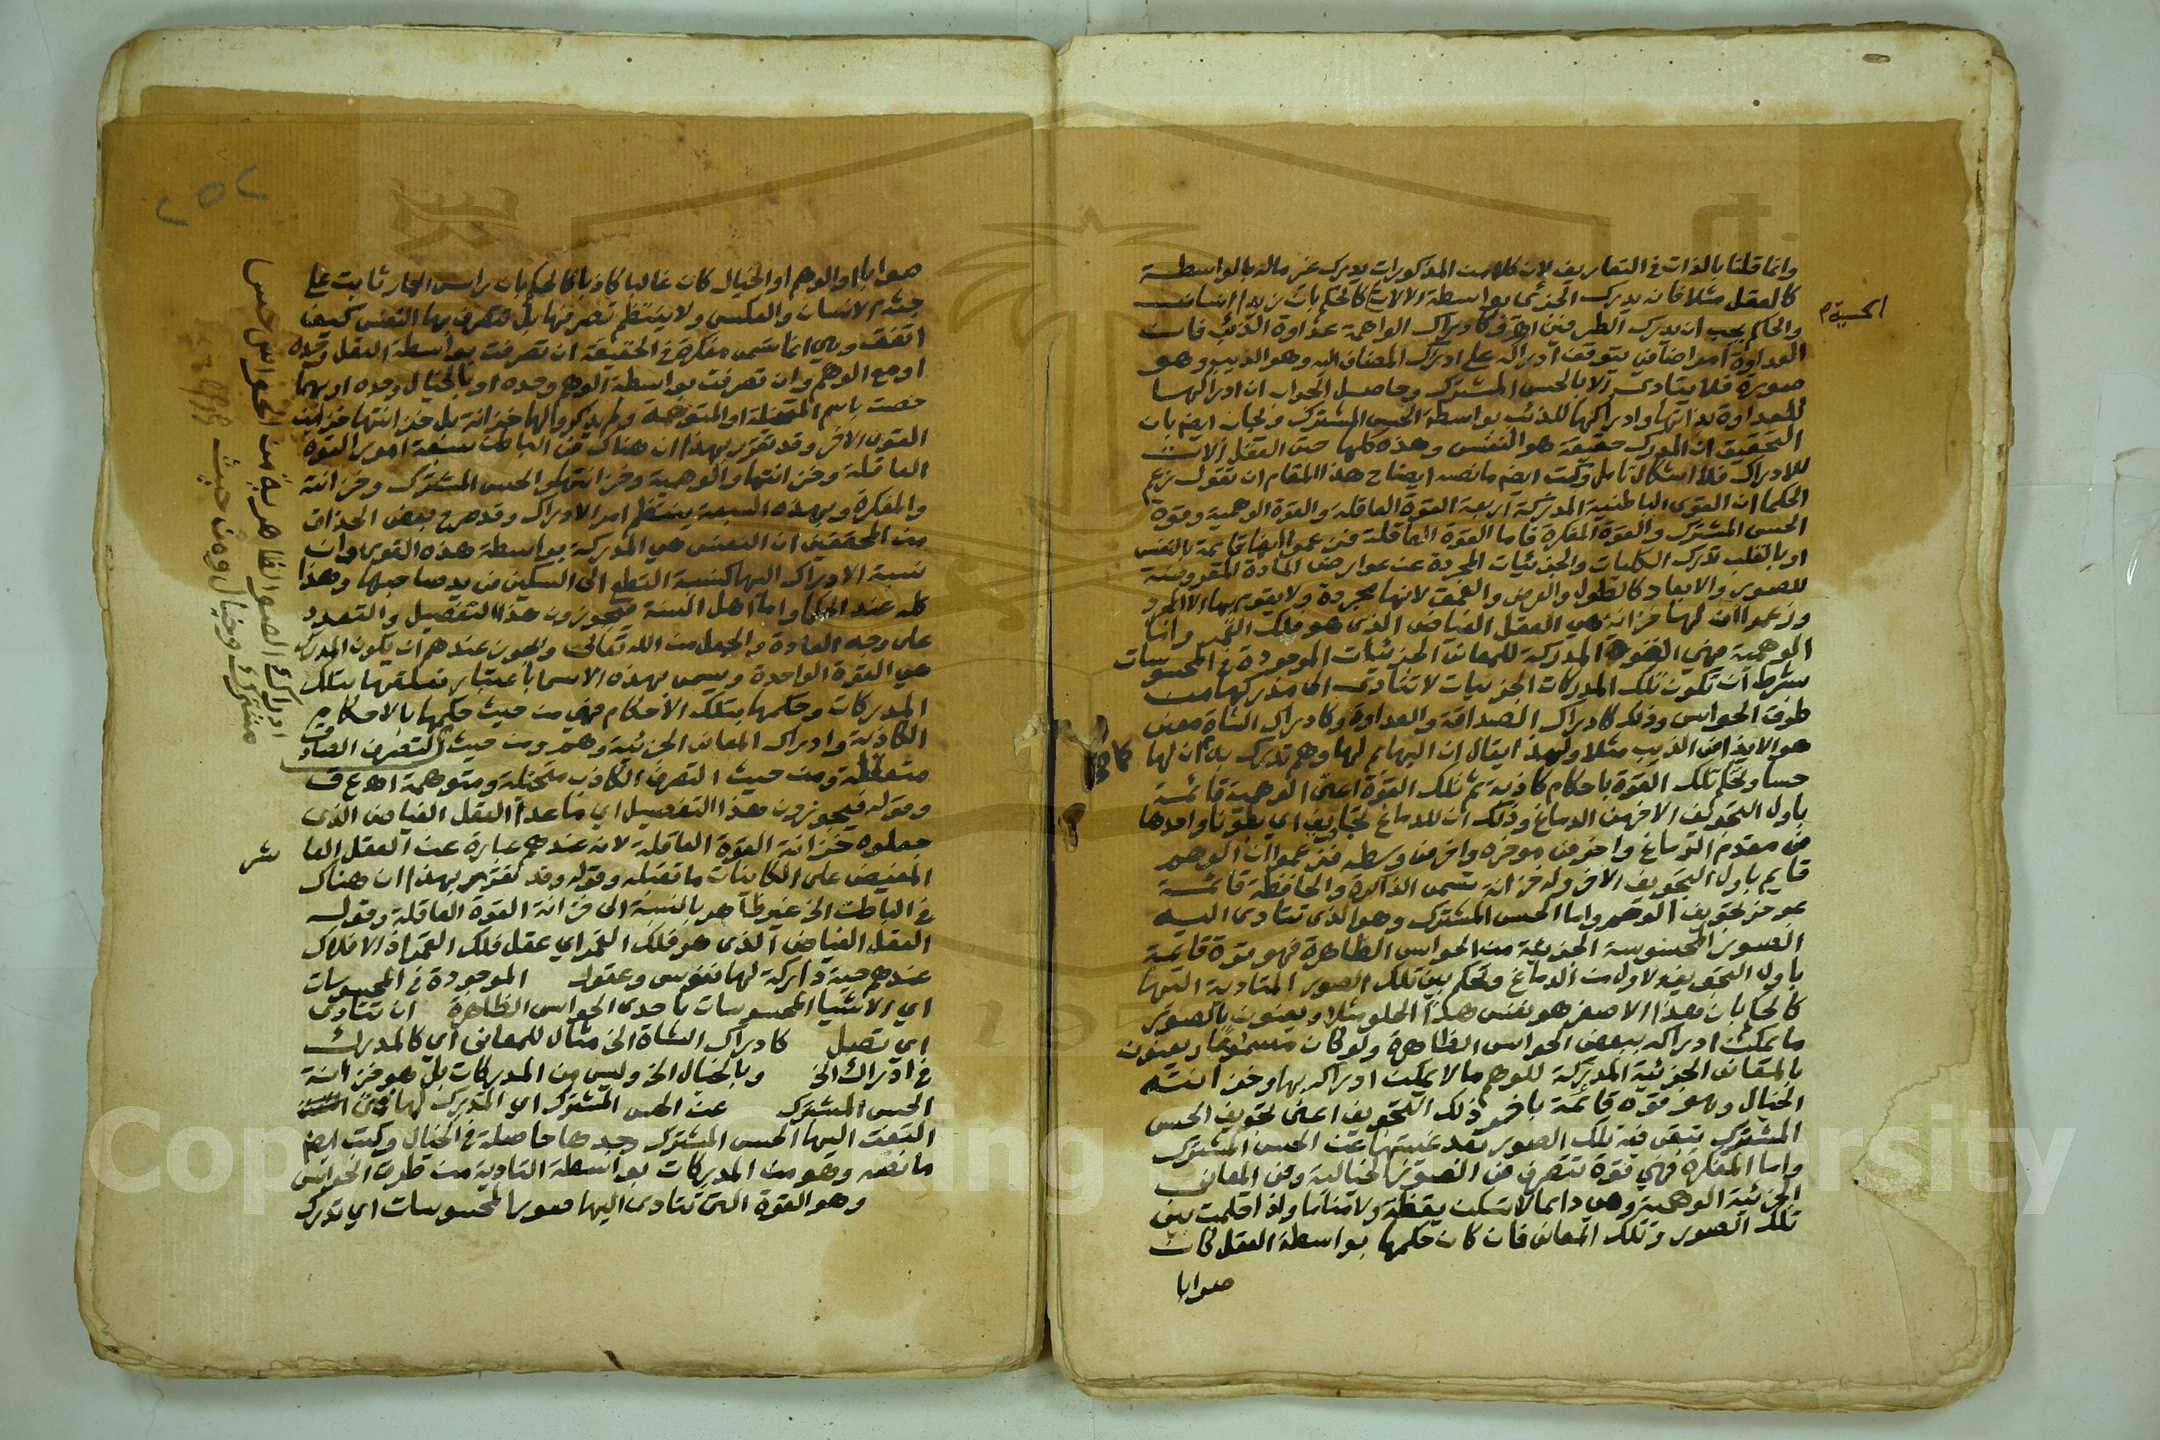 وانما قلنا بالذات في التعاريف لان كلا من المذكورات يدرك غير ماله بالواسطة
كالعقل مثلا فانه يدرك الجزئي بواسطة الالات كالحكم بان زيدا انسان
الحسية م
والحاكم يجب ان يدرك الطرفين اهـ ق كادراك الواهمة عداوة الذئب فان
العداوة امر اضافي يتوقف ادراكه على ادراك المضاف اليه وهو الذيب وهو
صورة فلا يتادى الا بالحس المشترك وحاصل الجواب ان ادراكها
للعداوة بذاتها وادراكها للذئب بواسطة الحس المشترك ويجاب ايضا بان
التحقيق ان المدرك حقيقة هو النفس وهذه كلها حتى العقل الات
للادراك فلا اشكال تامل وكتب ايضا ما نصه ايضاح هذا المقام ان تقول زعم
الحكما ان القوى الباطنية المدركة اربعة القوة العاقلة والقوة الوهمية وقوة
الحس المشترك والقوة المفكرة فاما القوة العاقلة فزعموا انها قايمة بالنفس
او بالقلب تدرك الكليات والجزئيات المجردة عن عوارض المادة المعروضة
للصور والابعاد كالطول والعرض والعمق لانها مجردة ولا يقوم بها الا المجرد
وزعموا ان لها خزانة هي العقل الفياض الذي هو فلك القمر واما
الوهمية فهي القوة المدركة للمعاني الجزئيات الموجودة في المحسوسات
بشرط ان تكون تلك المدركات الجزئيات لا تتادى الى مدركها من
طرق الحواس وذلك كادراك الصداقة والعداوة وكادراك الشاة معنى
هو الايذا في الذيب مثلا ولهذا يقال ان البهايم لها وهم تدرك به كما ان لها
حسا وتحكم تلك القوة باحكام كاذبة ثم تلك القوة اعني الوهمية قائمة
باول التجويف الاخر من الدماغ وذلك ان للدماغ تجاويف اي بطونا واحدها
في مقدم الدماغ واخر في موخره واخر في وسطه فزعموا ان الوهم
قايم باول التجويف الاخر وله خزانة تسمى الذاكرة والحافظة قائمة
بموخر تجويف الوهم واما الحس المشترك وهو الذي تتادى اليه
الصور المحسوسة الجزيئية من الحواس الظاهرة فهو قوة قايمة
باول التجويف الاول من الدماغ وتحكم بين تلك الصور المتادية اليها
كالحكم بان هذا الاصفر هو نفس هذا الحلو مثلا ويعنون بالصور
ما يمكن ادراكه ببعض الحواس الظاهرة ولو كان مسموعا ويعنون
بالمعاني الجزئية المدركة للوهم ما لا يمكن ادراكه بها وخزانته
الخيال وهو قوة قائمة باخر ذلك التجويف اعني تجويف الحس
المشترك تبقى فيه تلك الصور بعد غيبتها عن الحس المشترك
واما المفكرة فهي قوة تتصرف في الصور الخيالية وفي المعاني
الجزئية الوهمية وهي دايما لا تسكن يقظة ولا مناما واذا حكمت بين
تلك الصور وتلك المعاني فان كان حكمها بواسطة العقل كان
صوابا
٢٥٢
صوابا او الوهم او الخيال كان غالبا كاذبا كالحكم بان راس الحمار ثابت على
جثة الانسان والعكس ولا ينتظم تصرفها بل تتصرف بها النفس كيف
اتفق وهي انما تسمى مفكرة في الحقيقة ان تصرفت بواسطة العقل وحده
او مع الوهم وان تصرفت بواسطة الوهم وحده او بالخيال وحده او بهما
خصت باسم المتخيلة او المتوهمة ولم يذكروا لها خزانة بل خزانتها خزاين
القوى الاخر وقد تقرر بهذا ان هناك في الباطن سبعة امور القوة
العاقلة وخزانتها والوهمية وخزانتها والحس المشترك وخزانته
والمفكرة وبهذه السبعة ينتظم امر الادراك وقد صرح بعض الحذاق
من المحققين ان النفس هي المدركة بواسطة هذه القوى وان
نسبة الادراك اليها كنسبة القطع الى السكين في يد صاحبها وهذا
كله عند الحكما واما اهل السنة فيجوزون هذا التفصيل والتعدد
على وجه العادة والجعل من الله تعالى ويجوز عندهم ان يكون المدرك
هي القوة الواحدة ويسمى بهذه الاسما باعتبار تعلقها بتلك
المدركات وحكمها بتلك الاحكام فهي من حيث حكمها بالاحكام
الكاذبة وادراك المعاني الجزئية وهم ومن حيث التصرف الصادق
متعقلة ومن حيث التصرف الكاذب متخيلة ومتوهمة اهـ ع ق
وقوله فيجوزون هذا التفصيل اي ما عدا العقل الفياض الذي
جعلوه خزانة القوة العاقلة لانه عندهم عبارة عن العقل العاشر
المفيض على الكاينات ما تقبله وقوله وقد تقرر بهذا ان هناك
في الباطن الخ غير ظاهر بالنسبة الى خزانة القوة العاقلة وقوله
العقل الفياض الذي هو فلك القمر اي عقل فلك القمر اذ الافلاك
عندهم حية داركة لها نفوس وعقول الموجودة في المحسوسات
اي الاشيا المحسوسات باحدى الحواس الظاهرة ان تتادى
اي تصل كادراك الشاة الخ مثال للمعاني اي كالمدرك
في ادراك الخ وبالخيال الخ وليس من المدركات بل هو خزانة
الحس المشترك عن الحس المشترك اي المدرك لها
التفت اليها الحس المشترك وجدها حاصلة في الخيال وكتب ايضا
ما نصه وهو من المدركات بواسطة التادية من طرق الحواس
وهو القوة التي تتادى اليها صور المحسوسات اي تدرك
ادراك الصور الظاهرية من الحواس حس
مشترك وخيال ومن حيث